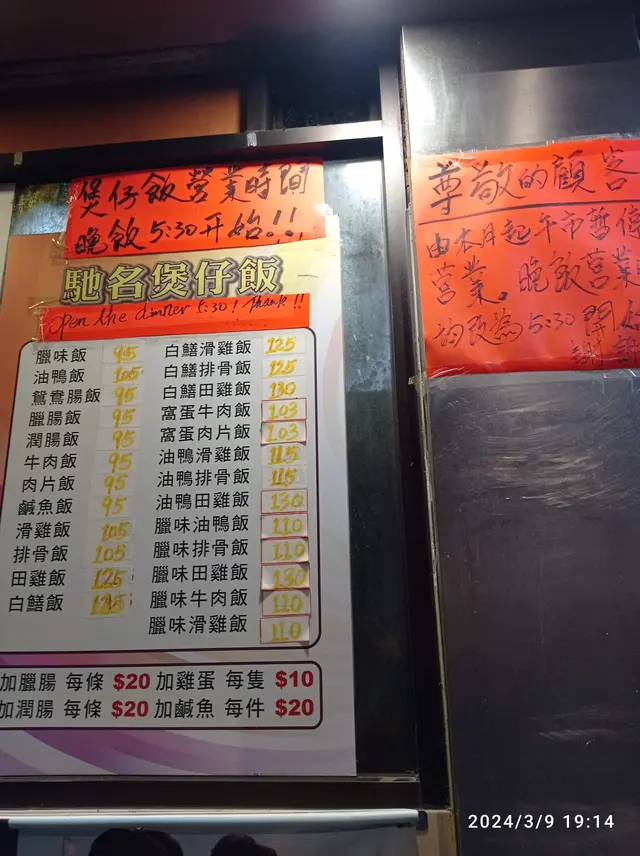 煲仔飯營業時間
晚飯5:30开始!!
馳名煲仔飯
open the dinner 5:30! thank!!
臘味飯 95
油鴨飯 105
鴛鴦腸飯 95
臘腸飯 95
潤腸飯 95
牛肉飯 95
肉片飯 95
鹹魚飯 95
滑雞飯 105
排骨飯 105
田雞飯 125
白鱔飯 125
白鱔滑雞飯 125
白鱔排骨飯 125
白鱔田雞飯 130
窩蛋牛肉飯 103
窩蛋肉片飯 103
油鴨滑雞飯 115
油鴨排骨飯 115
油鴨田雞飯 130
臘味油鴨飯 110
臘味排骨飯 110
臘味田雞飯 130
臘味牛肉飯 110
臘味滑雞飯 110
加臘腸 每條 $20 加雞蛋 每隻 $10
加潤腸 每條 $20 加鹹魚 每件 $20
尊敬的顧客
由本月起午市暫停
營業。晚飯營業
均改為5:30開始
謝
2024/3/9 19:14